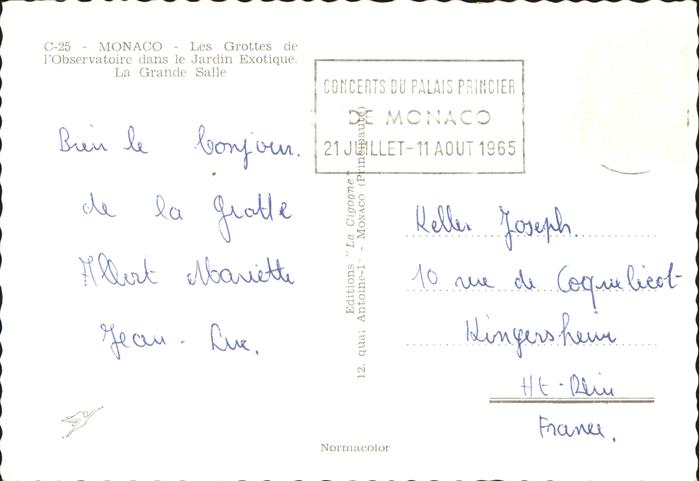 C-25 - MONACO - Les Grottes de
l'Observatoire dans le Jardin Exotique.
La Grande Salle
CONCERTS DU PALAIS PRINCIER
DE MONACO
21 JUILLET-11 AOUT 1965
Bien le bonjour.
de la Grotte
Albert Mariette
Jean-Luc.
Editions "La Cigogne"
12, quai Antoine-1er - MONACO (Principauté)
Keller Joseph.
10 rue de Coquelicot
Kingersheim
Ht-Rhin
France.
Normacolor